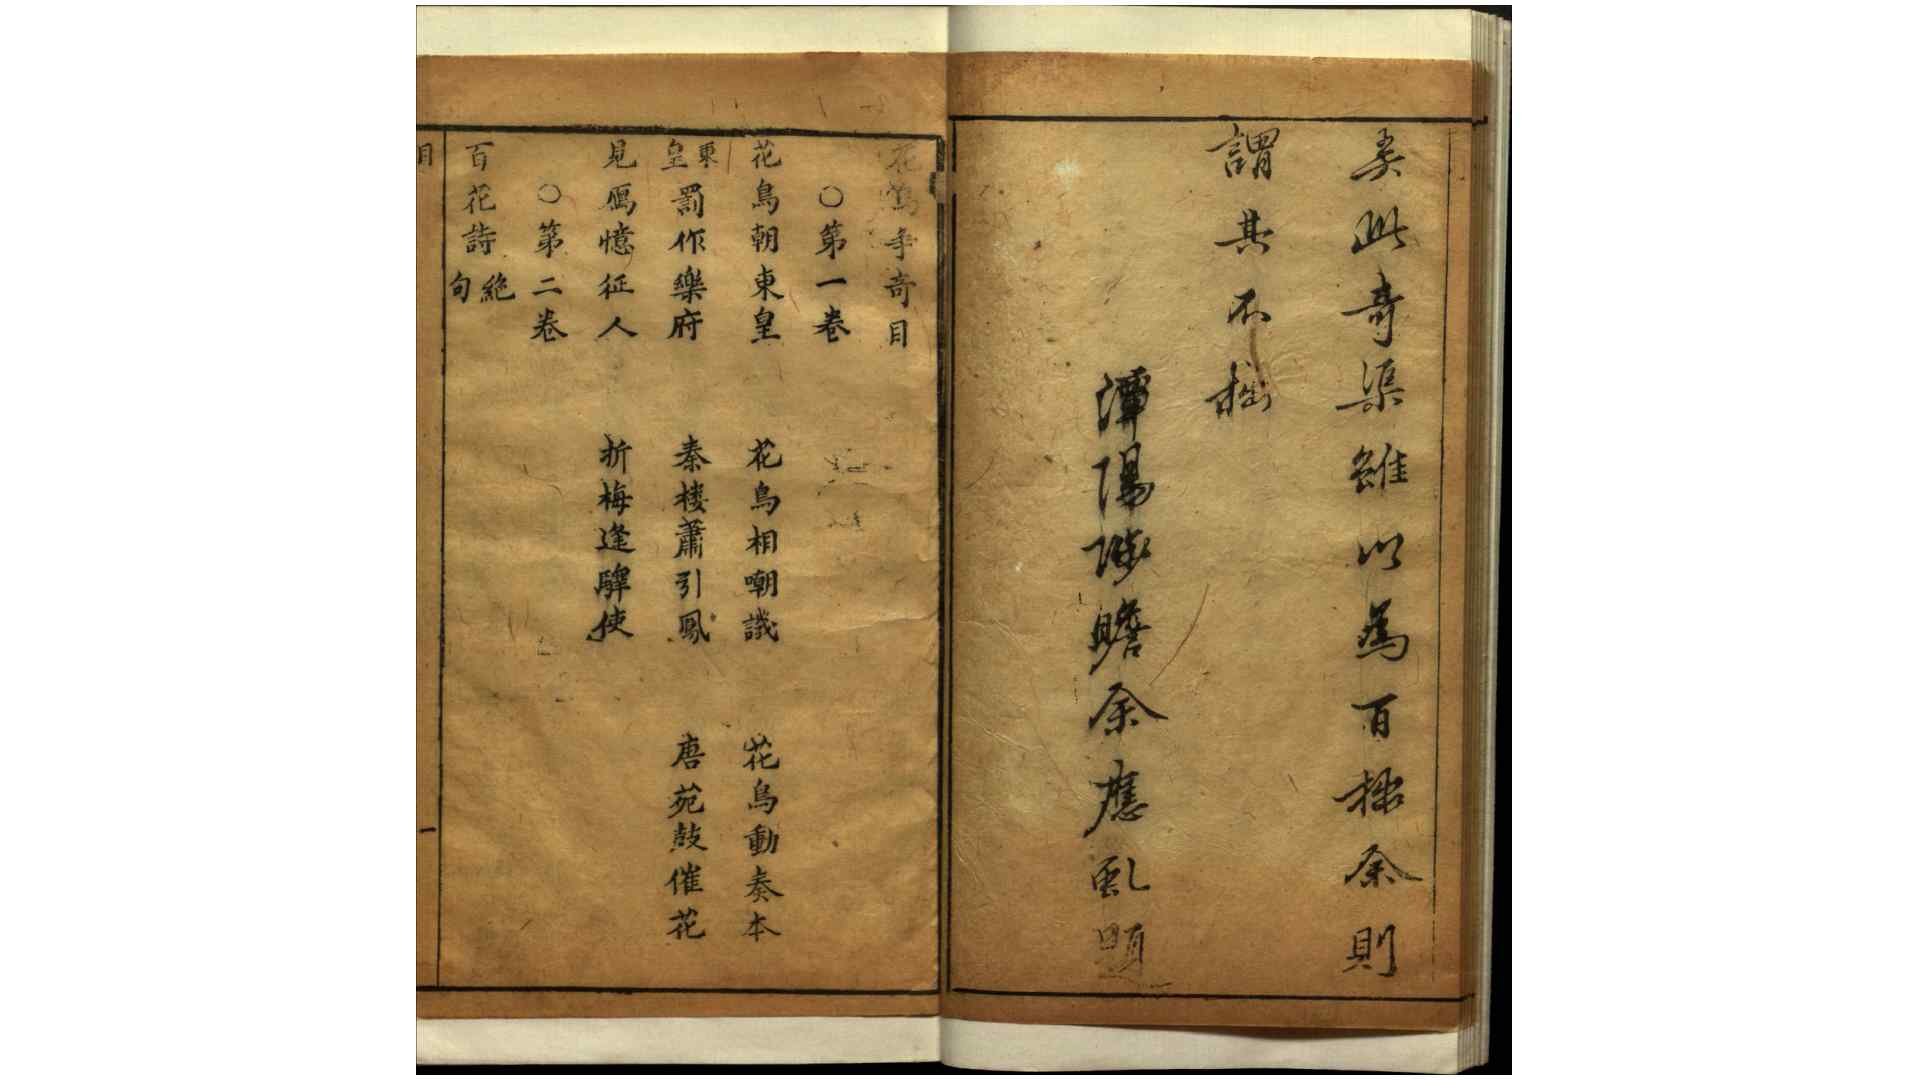 矣此奇渠雖以為百拙余則
謂其不拙
潭陽陟瞻余應虬題
花鳥爭奇目
○第一卷
花鳥朝東皇 花鳥相嘲譏 花鳥動奏本
東皇罰作樂府 秦楼蕭引鳳 唐苑鼓催花
見鴈憶征人 折梅逢驛使
○第二卷
百花詩絶句
目 一